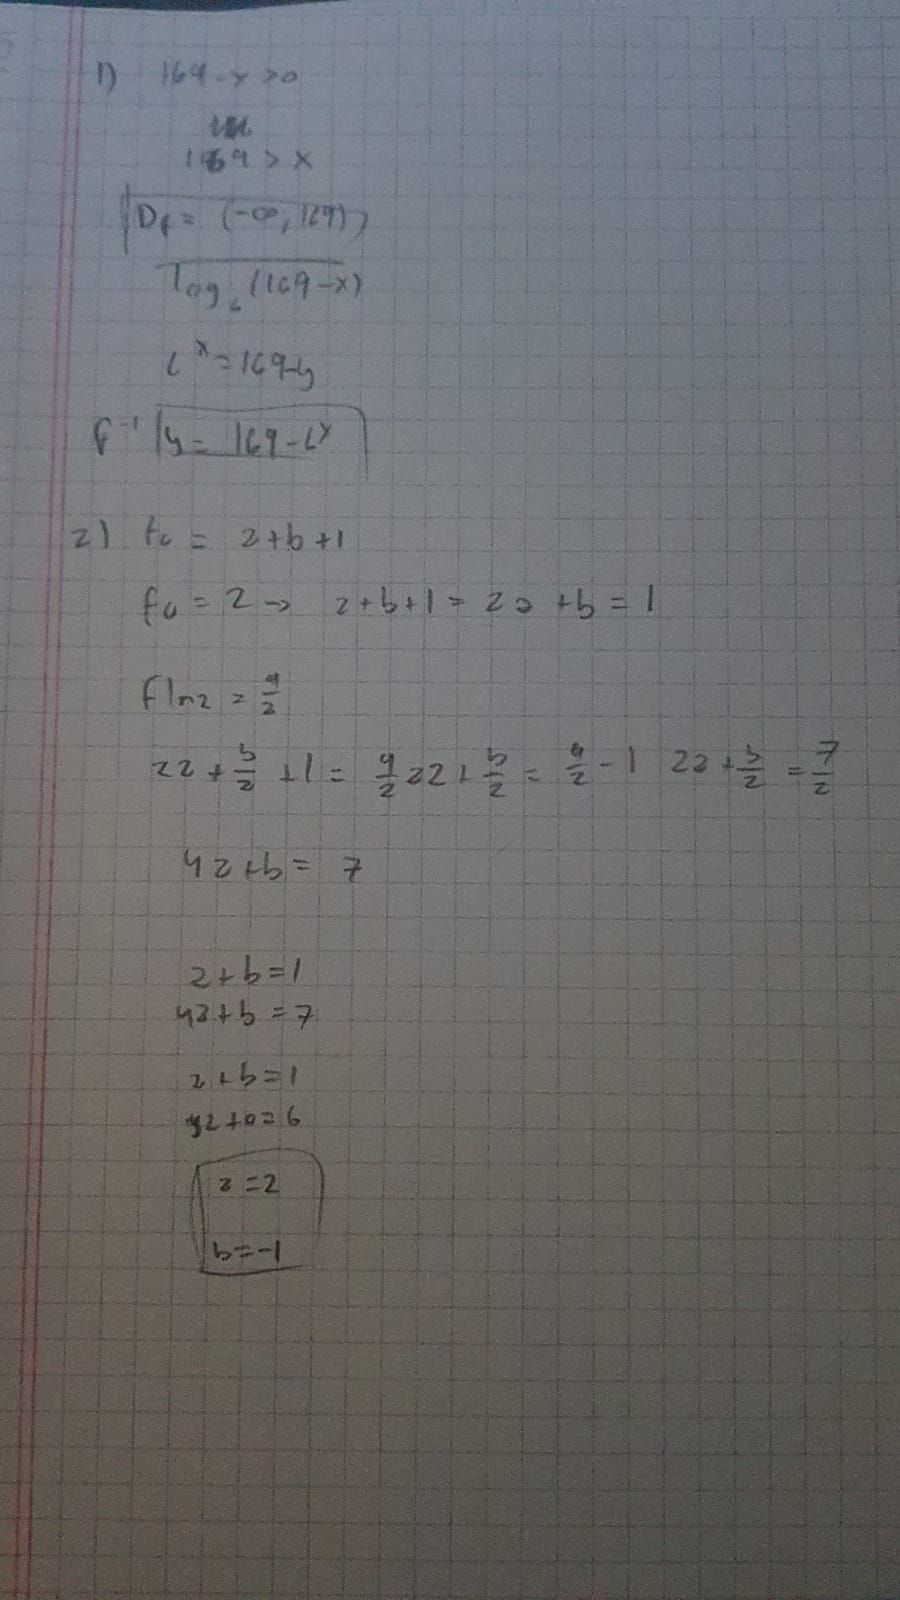 1) 169-x>0
169>x
Df = (-∞, 169)
log₆(169-x)
6ˣ=169-y
f⁻¹ y= 169-6ˣ
2) f0 = a+b+1
f0 = 2 → a+b+1=2 a+b=1
fln2 = 9/2
2a + b/2 +1 = 9/2 2a + b/2 = 9/2 - 1 2a + b/2 = 7/2
4a+b= 7
a+b=1
4a+b=7
a+b=1
a+0=6
a=2
b=-1